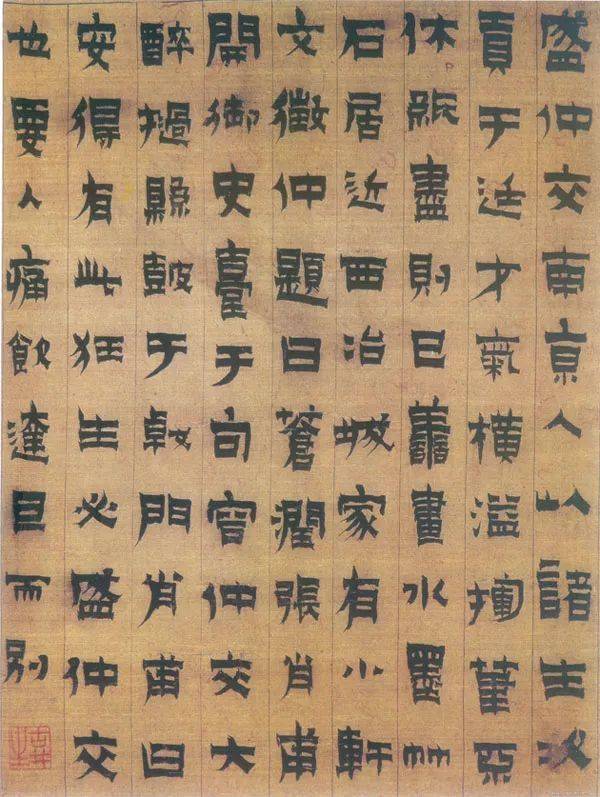 盛仲交南京人以諸生次
貢于廷才氣橫溢揮筆不
休紙盡則已善畫水墨竹
石居近西冶城家有小軒
文徵仲題曰蒼潤張肖甫
開御史臺于句容仲交大
醉撾縣鼓于門肖甫曰
安得有此狂生必盛仲交
也要入痛飲達旦而別